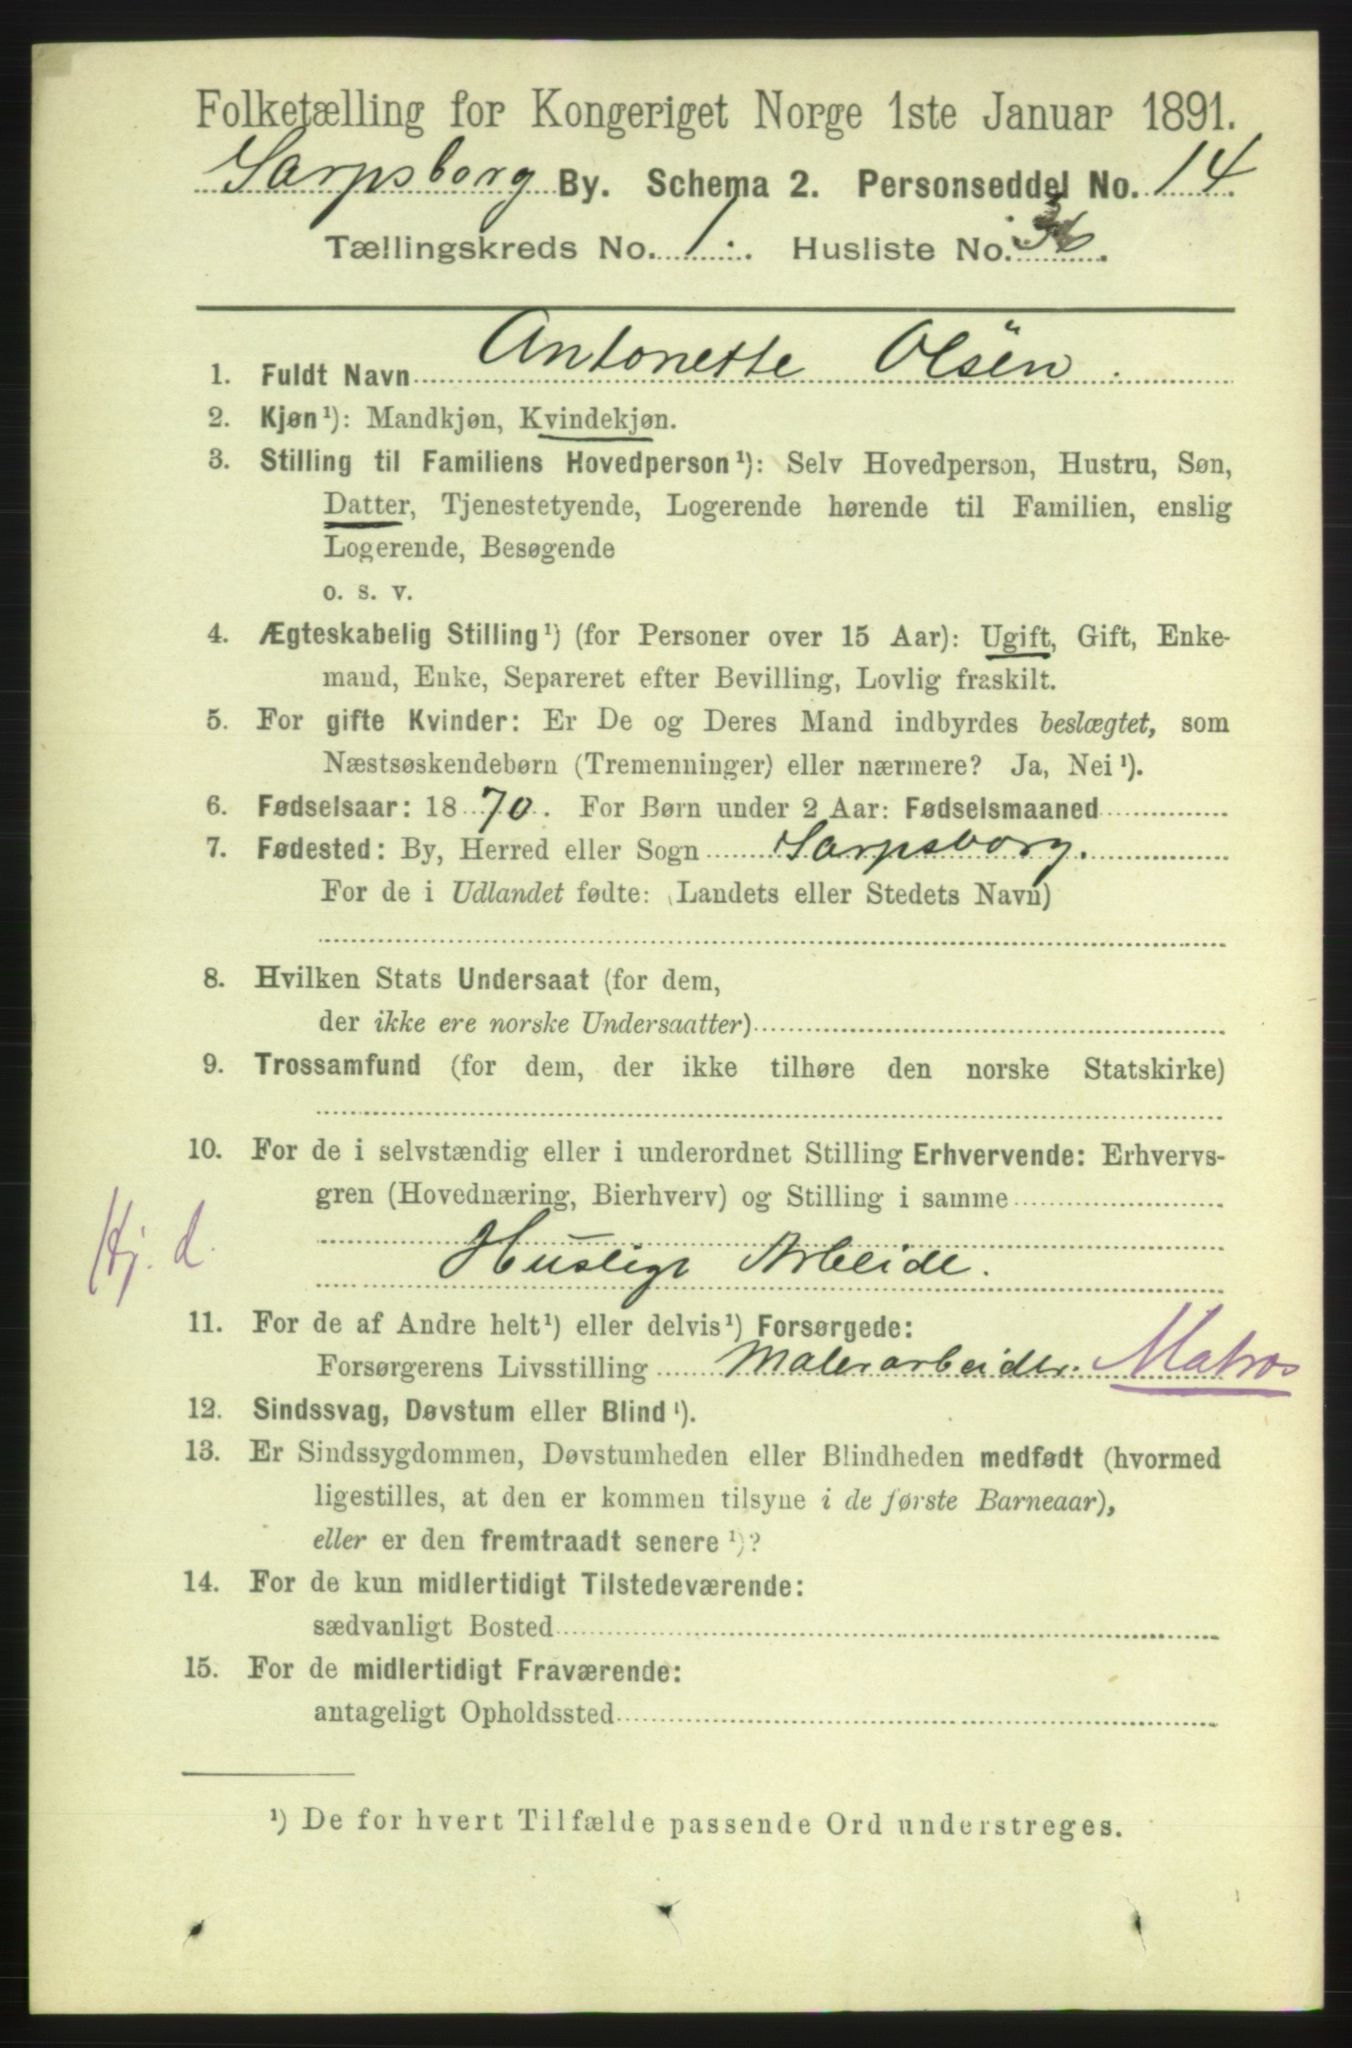 Folketælling for Kongeriget Norge 1ste Januar 1891.
Sarpsborg By. Schema 2. Personseddel No. 14.
Tællingskreds No. 1. Husliste No. 36.
1. Fuldt Navn Antonette Olsen.
2. Kjøn¹): Mandkjøn, Kvindekjøn.
3. Stilling til Familiens Hovedperson¹): Selv Hovedperson, Hustru, Søn,
Datter, Tjenestetyende, Logerende hørende til Familien, enslig
Logerende, Besøgende
o. s. v.
4. Ægteskabelig Stilling¹) (for Personer over 15 Aar): Ugift, Gift, Enke-
mand, Enke, Separeret efter Bevilling, Lovlig fraskilt.
5. For gifte Kvinder: Er De og Deres Mand indbyrdes beslægtet, som
Næstsøskendebørn (Tremenninger) eller nærmere? Ja, Nei¹).
6. Fødselsaar: 1870. For Børn under 2 Aar: Fødselsmaaned
7. Fødested: By, Herred eller Sogn Sarpsborg.
For de i Udlandet fødte: (Landets eller Stedets Navn)
8. Hvilken Stats Undersaat (for dem,
der ikke ere norske Undersaatter)
9. Trossamfund (for dem, der ikke tilhøre den norske Statskirke)
10. For de i selvstændig eller i underordnet Stilling Erhvervende: Erhvervs-
gren (Hovednæring, Bierhverv) og Stilling i samme
Hj. d.
Husligt Arbeide.
11. For de af Andre helt¹) eller delvis¹) Forsørgede:
Forsørgerens Livsstilling Malerarbeider. Matros
12. Sindssvag, Døvstum eller Blind¹).
13. Er Sindssygdommen, Døvstumheden eller Blindheden medfødt (hvormed
ligestilles, at den er kommen tilsyne i de første Barneaar),
eller er den fremtraadt senere¹)?
14. For de kun midlertidigt Tilstedeværende:
sædvanligt Bosted
15. For de midlertidigt Fraværende:
antageligt Opholdssted
¹) De for hvert Tilfælde passende Ord understreges.